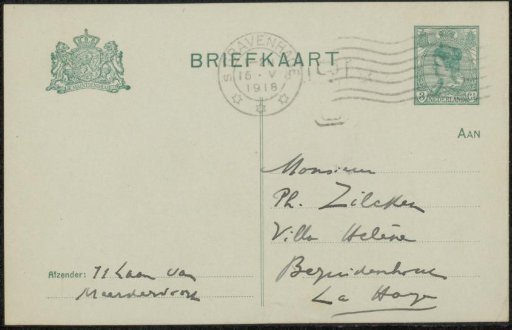 BRIEFKAART
'S GRAVENHAGE
16 - V
1918
NEDERLAND
AAN
Monsieur
Ph. Zilcken
Villa Hélène
Bezuidenhout
La Haye
Afzender: 71 Laan van
Meerdervoort